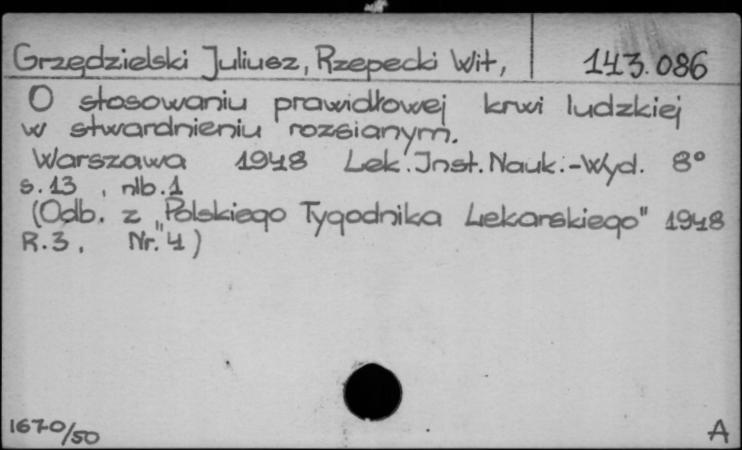 Grzędzielski Juliusz, Rzepecki Wit, 143.086
O stosowaniu prawidłowej krwi ludzkiej
w stwardnieniu rozsianym.
Warszawa 1948 Lek. Inst. Nauk.-Wyd. 8°
s. 13 , nlb. 1
(Odb. z "Polskiego Tygodnika Lekarskiego" 1948
R. 3 , Nr. 4)
1670/50 A